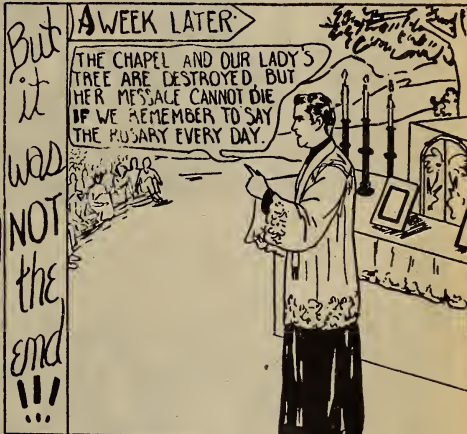 But
it
was
NOT
the
end
!!!
A WEEK LATER
THE CHAPEL AND OUR LADY'S
TREE ARE DESTROYED, BUT
HER MESSAGE CANNOT DIE
IF WE REMEMBER TO SAY
THE ROSARY EVERY DAY.